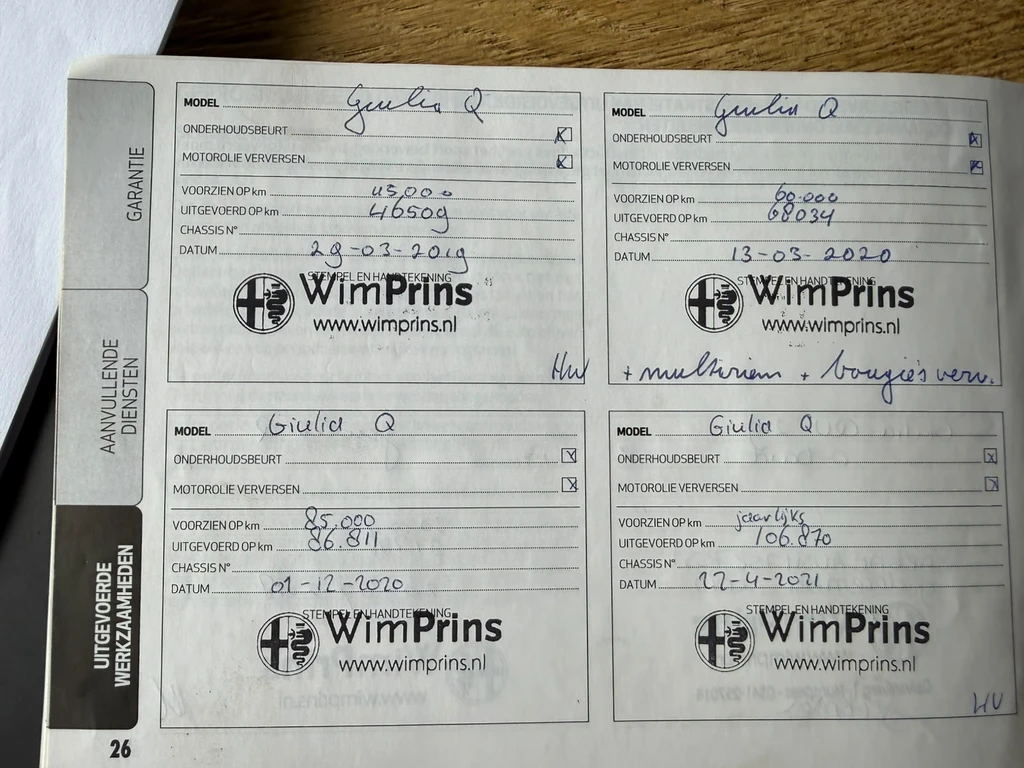 GARANTIE
AANVULLENDE
DIENSTEN
UITGEVOERDE
WERKZAAMHEDEN
MODEL Giulia Q
ONDERHOUDSBEURT X
MOTOROLIE VERVERSEN X
VOORZIEN OP km 45.000
UITGEVOERD OP km 46509
CHASSIS N°
DATUM 29-03-2019
STEMPEL EN HANDTEKENING
WimPrins
www.wimprins.nl
MODEL Giulia Q
ONDERHOUDSBEURT X
MOTOROLIE VERVERSEN X
VOORZIEN OP km 60.000
UITGEVOERD OP km 68034
CHASSIS N°
DATUM 13-03-2020
STEMPEL EN HANDTEKENING
WimPrins
www.wimprins.nl
+ multiriem + bougie's verv.
MODEL Giulia Q
ONDERHOUDSBEURT X
MOTOROLIE VERVERSEN X
VOORZIEN OP km 85.000
UITGEVOERD OP km 86.811
CHASSIS N°
DATUM 01-12-2020
STEMPEL EN HANDTEKENING
WimPrins
www.wimprins.nl
MODEL Giulia Q
ONDERHOUDSBEURT X
MOTOROLIE VERVERSEN X
VOORZIEN OP km jaarlijks
UITGEVOERD OP km 106.870
CHASSIS N°
DATUM 22-4-2021
STEMPEL EN HANDTEKENING
WimPrins
www.wimprins.nl
26